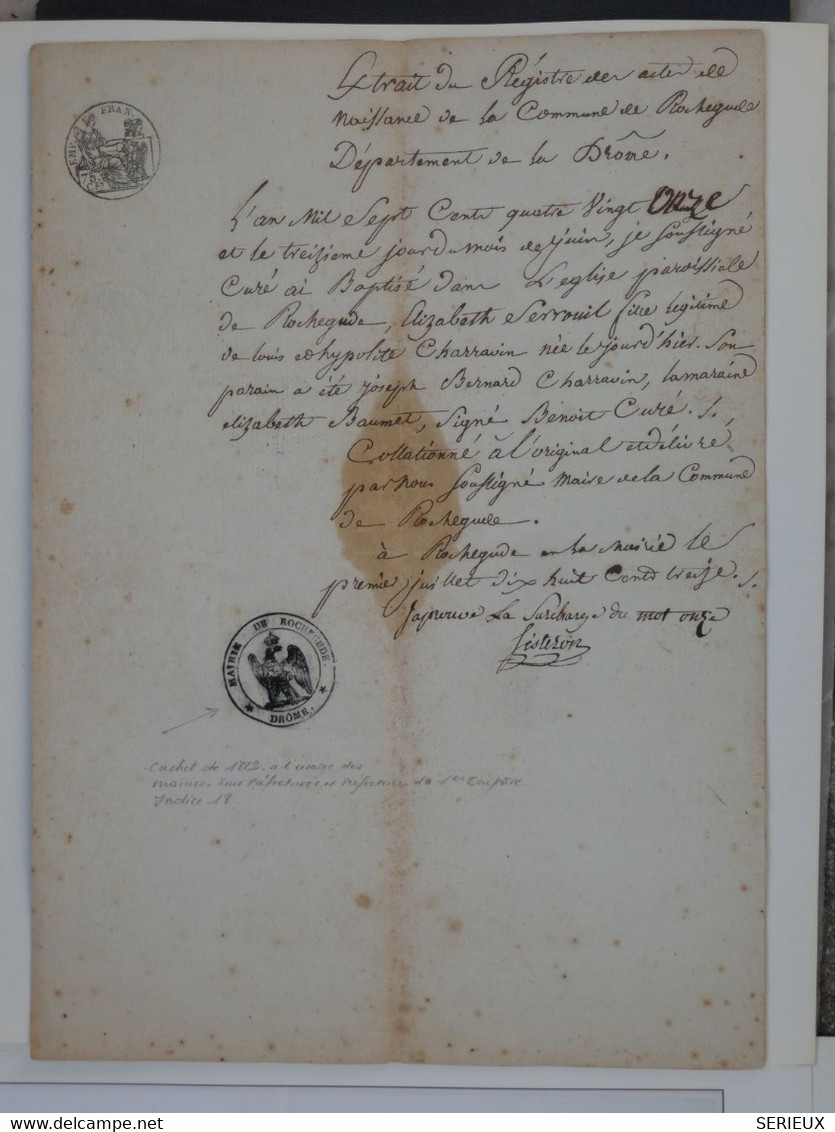 EMP. FRAN.
75 CES
Extrait du Régistre des actes de
Naissance de la Commune de Rochegude
Département de la Drôme.
L'an Mil Sept Cents quatre Vingt Onze
et le treizieme jour du mois de juin, je Soussigné
Curé ai Baptisé dans L'eglise paroissiale
de Rochegude, Elizabeth Serrouil fille legitime
de louis et hypolite Charravin née le jour d'hier. Son
parain a été joseph Bernard Charravin, la maraine
elizabeth Baumet, Signé Benoit Curé. /.
Collationné à l'original et délivré
par nous Soussigné Maire de la Commune
de Rochegude.
à Rochegude en la Mairie le
premier juillet dix huit Cents treize. /.
japrouve La Surcharge du mot onze
Sisteron
MAIRIE DE ROCHEGUDE.
DRÔME.
Cachet de 1812 a l'usage des
mairies Sous Préfectures et Préfectures du 1er Empire
Indice 18
SERIEUX
www.delcampe.net